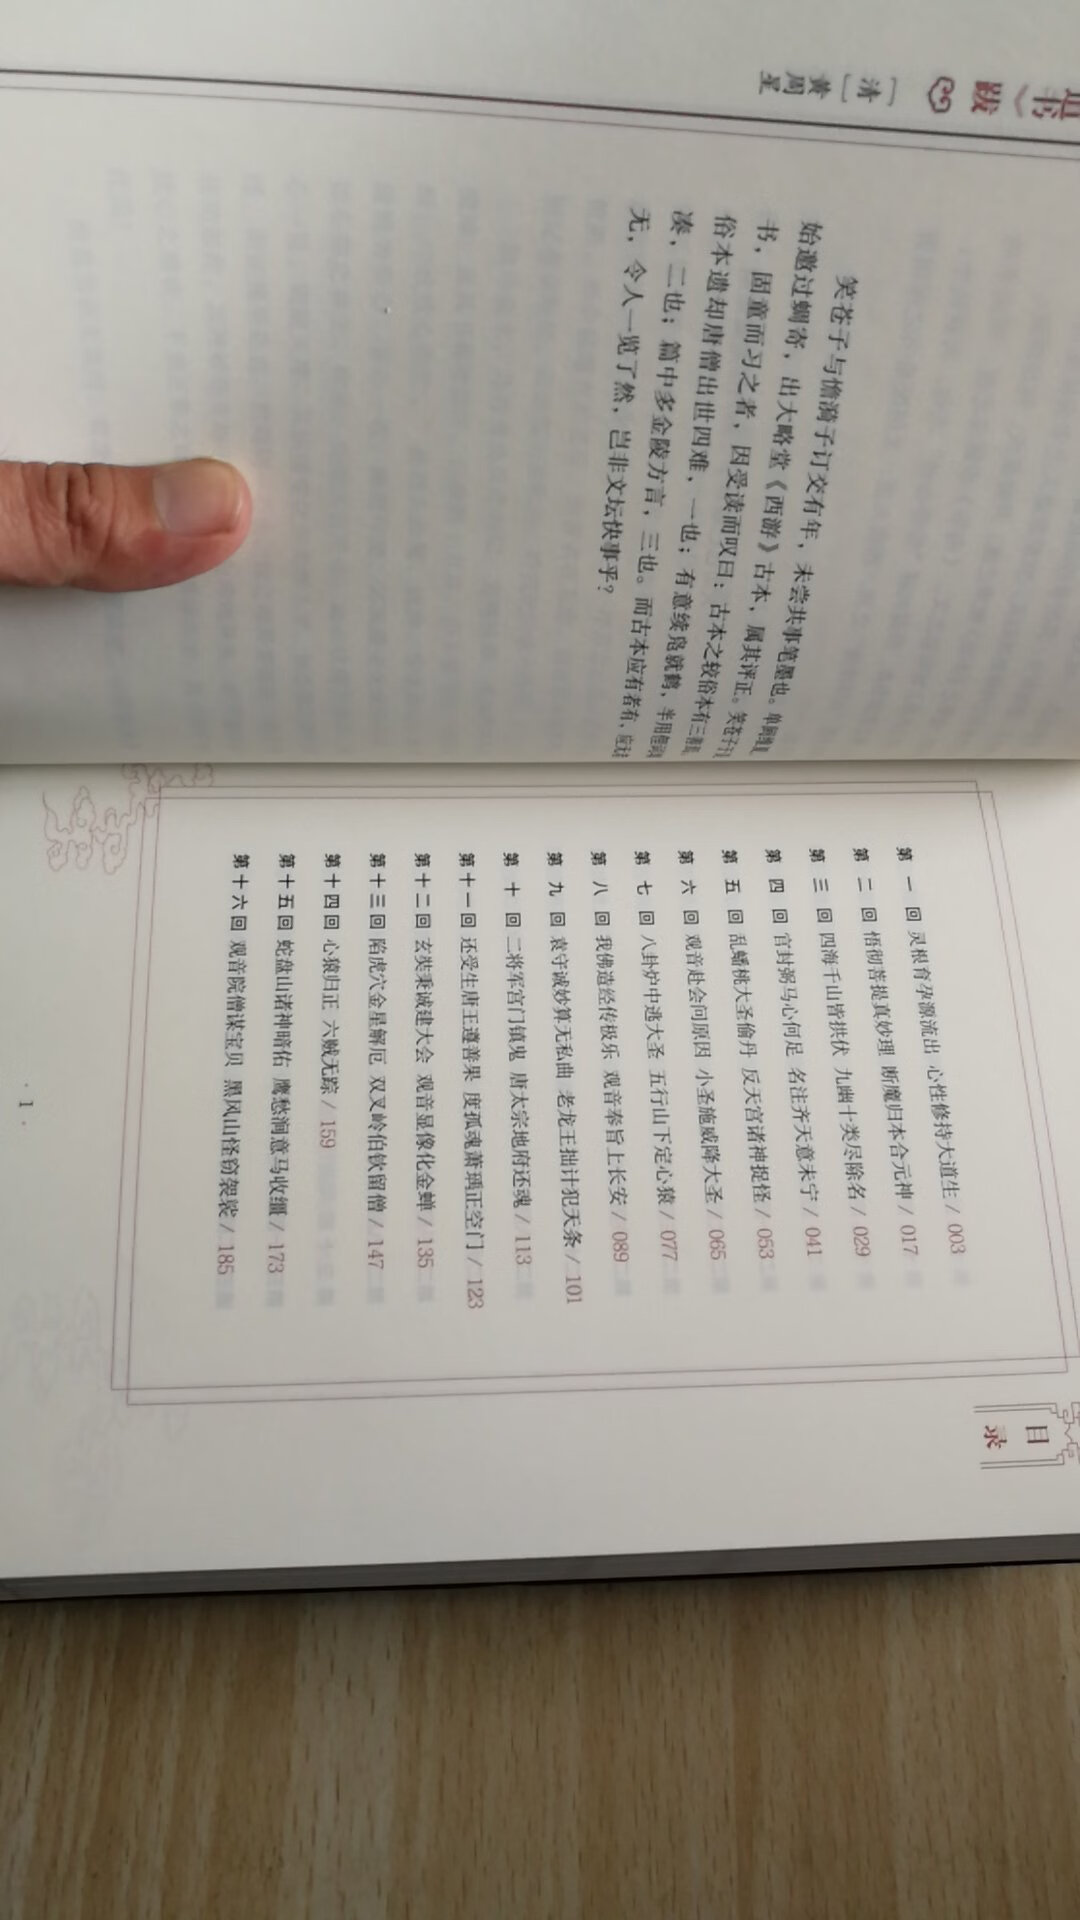 跋
[清]黄周星
笑苍子与憺漪子订交有年，未尝共事笔墨也。单阏维
始邀过蜩寄，出大略堂《西游》古本，属其评正。笑苍子
书，固童而习之者，因受读而叹曰：古本之较俗本有三善
俗本遗却唐僧出世四难，一也；有意续凫就鹤，半用俚词
凑，二也；篇中多金陵方言，三也。而古本应有者有，应无
无，令人一览了然，岂非文坛快事乎？
目录
第一回 灵根育孕源流出 心性修持大道生 / 003
第二回 悟彻菩提真妙理 断魔归本合元神 / 017
第三回 四海千山皆拱伏 九幽十类尽除名 / 029
第四回 官封弼马心何足 名注齐天意未宁 / 041
第五回 乱蟠桃大圣偷丹 反天宫诸神捉怪 / 053
第六回 观音赴会问原因 小圣施威降大圣 / 065
第七回 八卦炉中逃大圣 五行山下定心猿 / 077
第八回 我佛造经传极乐 观音奉旨上长安 / 089
第九回 袁守诚妙算无私曲 老龙王拙计犯天条 / 101
第十回 二将军宫门镇鬼 唐太宗地府还魂 / 113
第十一回 还受生唐王遵善果 度孤魂萧瑀正空门 / 123
第十二回 玄奘秉诚建大会 观音显像化金蝉 / 135
第十三回 陷虎穴金星解厄 双叉岭伯钦留僧 / 147
第十四回 心猿归正 六贼无踪 / 159
第十五回 蛇盘山诸神暗佑 鹰愁涧意马收缰 / 173
第十六回 观音院僧谋宝贝 黑风山怪窃袈裟 / 185
· 1 ·